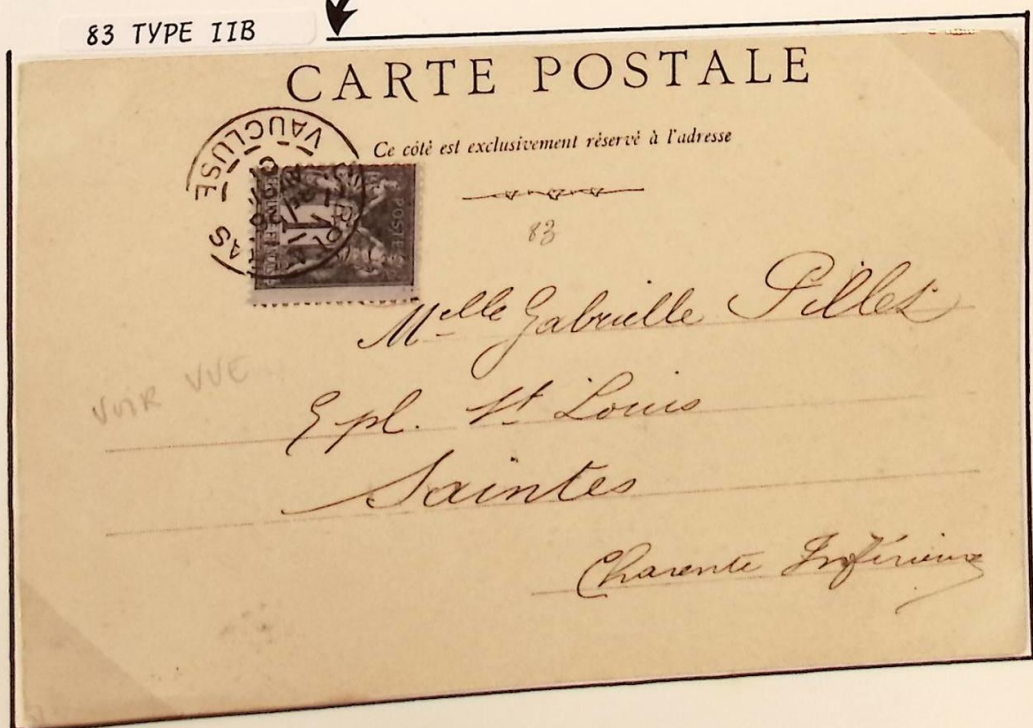 83 TYPE IIB
CARTE POSTALE
Ce côté est exclusivement réservé à l'adresse
VAUCLUSE
POSTES
1
83
Melle Gabrielle Pillet
VOIR VUE
9 pl. St Louis
Saintes
Charente Inférieure